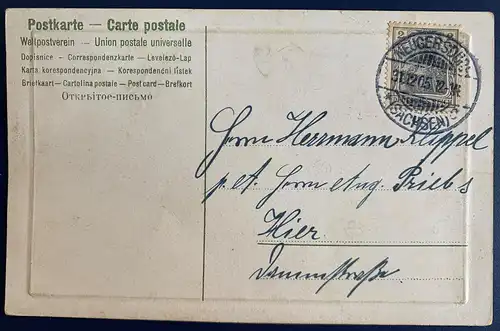 Postkarte — Carte postale
Weltpostverein — Union postale universelle
Dopisnice - Correspondenzkarte - Levelező-Lap
Karta korespondencyjna - Korespondenční lístek
Briefkart - Cartolina postale - Postcard - Brefkort
Открытое-письмо
2
NEUGERSDORF
31.12.05
(SACHSEN)
Herrn Herrmann Küppel
p. A. Herrn Aug. Priebs
Hier
Dammstraße